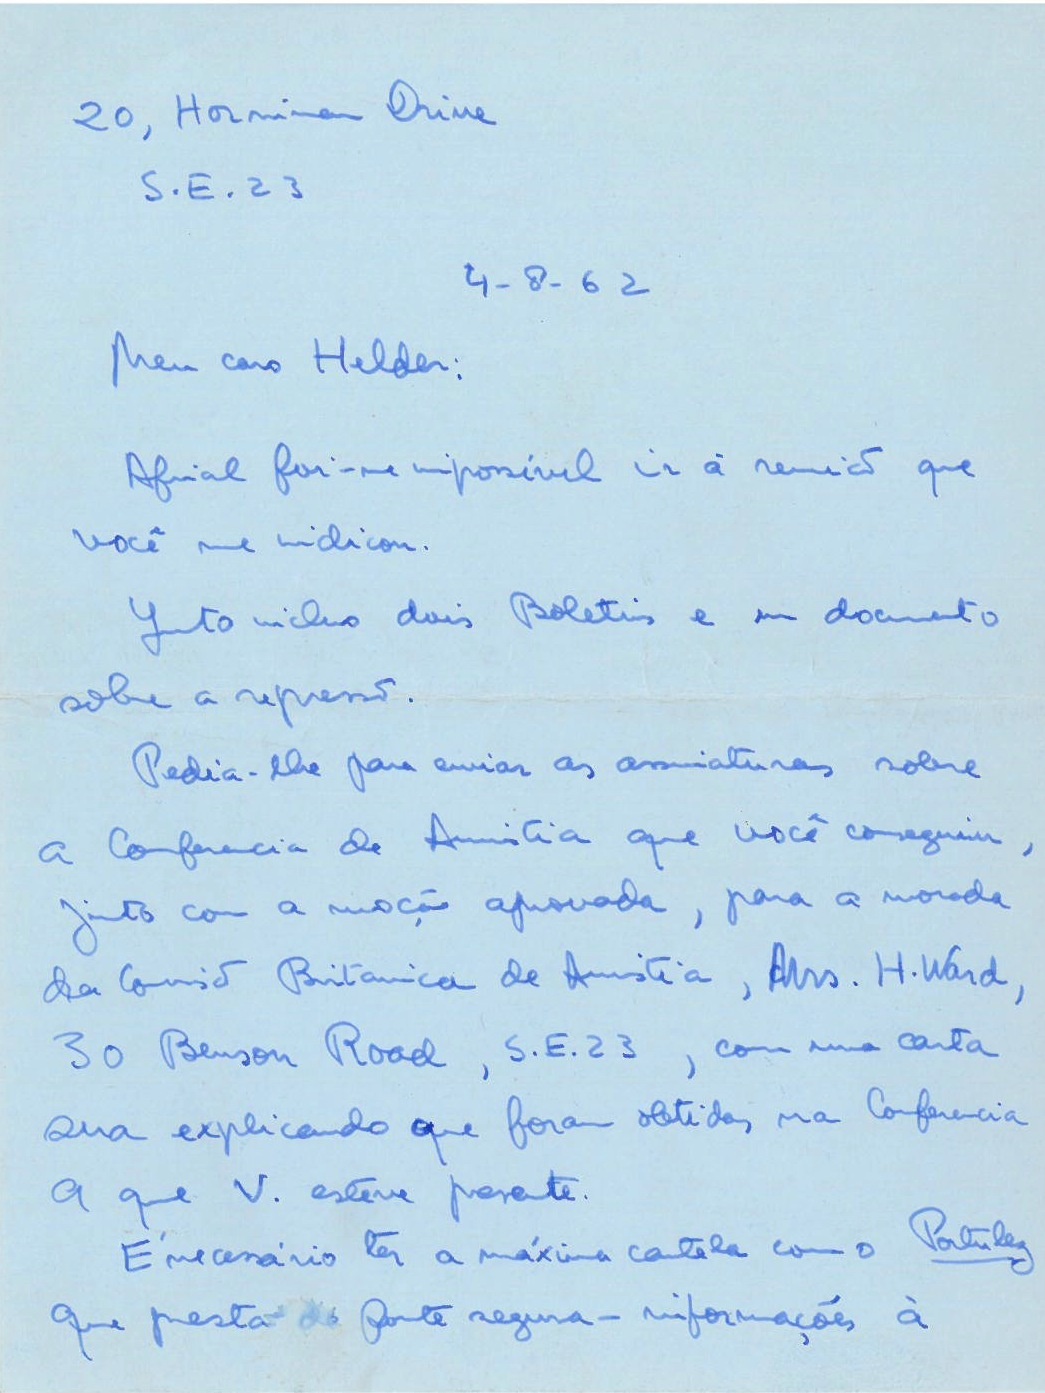 20, Horniman Drive
S.E.23
4-8-62
Meu caro Helder:
Afinal foi-me impossível ir à reunião que
você me indicou.
Junto incluo dois Boletins e um documento
sobre a repressão.
Pedia-lhe para enviar as assinaturas sobre
a Conferencia de Amnistia que você conseguiu,
junto com a moção aprovada, para a morada
da Comissão Britanica de Amnistia, Mrs. H. Ward,
30 Benson Road, S.E.23, com uma carta
sua explicando que foram obtidas na Conferencia
a que V. esteve presente.
É necessário ter a máxima cautela com o
que presta de fonte segura - informações à